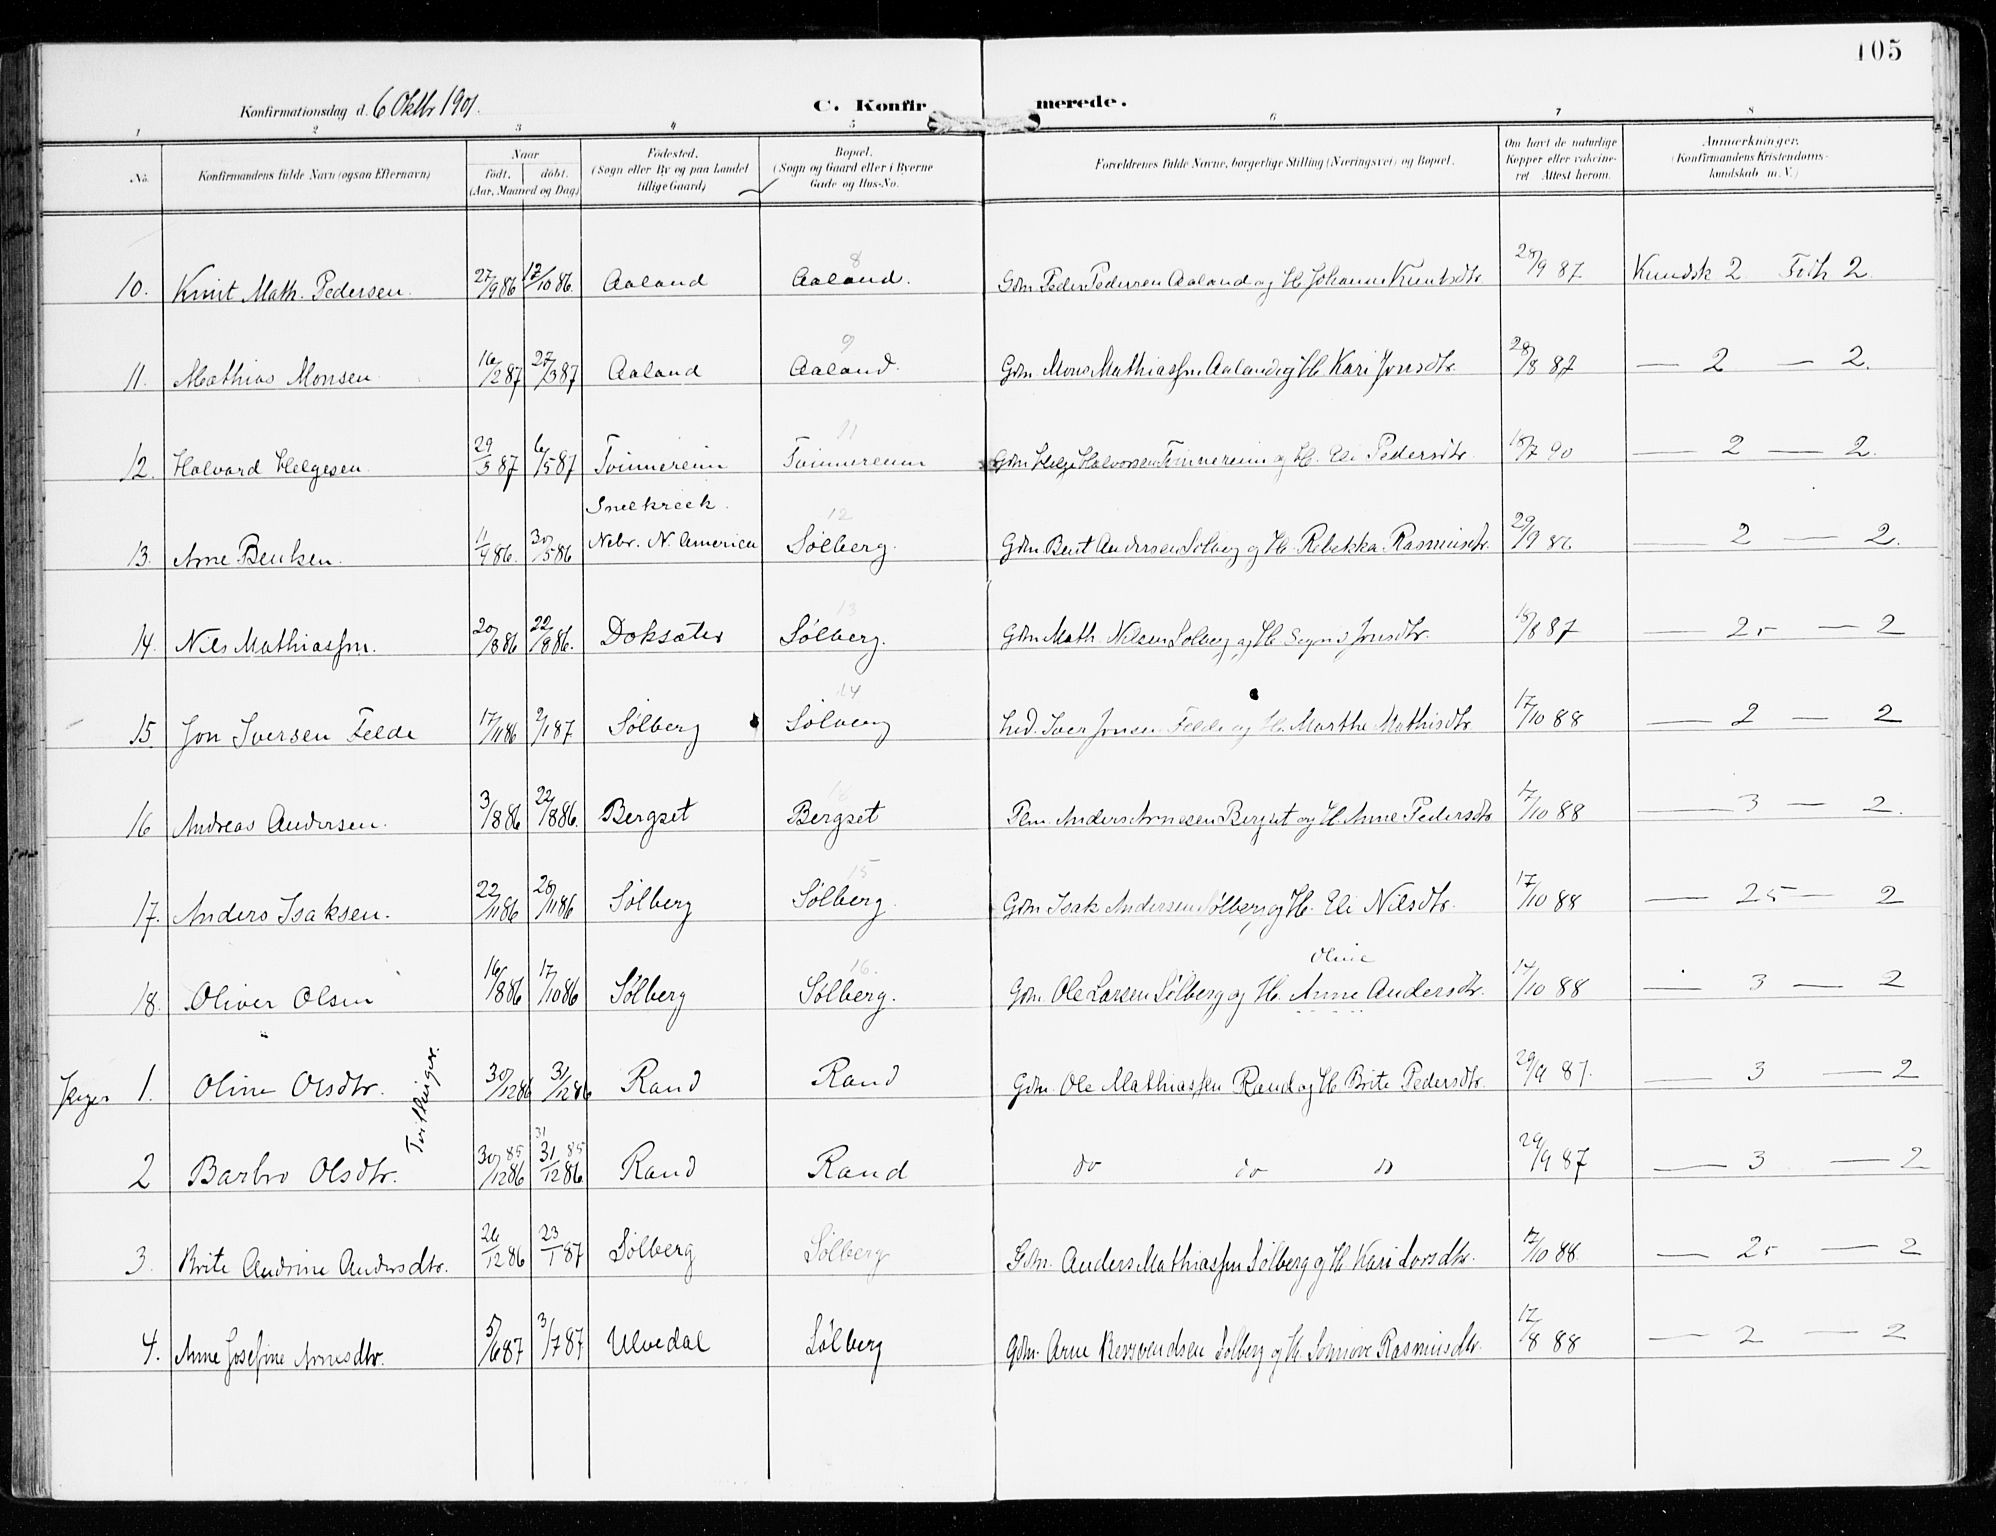 105
Konfirmationsdag d. 6 Oktbr 1901.
C. Konfirmerede.
1 2 3 4 5 6 7 8
No. Konfirmandens fulde Navn (ogsaa Efternavn) Naar født. døbt. (Aar, Maaned og Dag) Fødested. (Sogn eller By og paa Landet tillige Gaard) Bopæl. (Sogn og Gaard eller i Byerne Gade og Hus-No. Forældrenes fulde Navne, borgerlige Stilling (Næringsvei) og Bopæl. Om havt de naturlige Kopper eller vakcineret Attest herom. Anmærkninger. (Konfirmandens Kristendomskundskab m. V.)
8
10. Knut Math. Pedersen. 27/9 86 17/10 86. Aaland Aaland. Gdm Peder Pedersen Aaland og H. Johanne Knutsdtr 28/9 87 Kundsk 2 Flih 2.
9
11. Mathias Monsen. 16/2 87 27/3 87 Aaland Aaland. Gdm. Mons Mathiassen Aaland og H. Kari Jonsdtr. 28/8 87 — 2 — 2.
11
12. Halvard Helgesen. 29/3 87 6/5 87 Tvinnereim Tvinnereim Gdm Helge Halvorsen Tvinnereim og H. Eli Pedersdtr. 18/7 90 — 2 — 2.
Sneekreek.
12
13. Arne Bentsen. 11/4 86. 30/5 86 Nebr. N. America Sølberg. Gdm Bent Andersen Sølberg og H. Rebekka Rasmusdtr. 29/9 86 — 2 — 2.
13
14. Nils Mathiassen. 20/8 86 22/8 86. Doksæter Sølberg. Gdm Math. Nilsen Sølberg og H. Jonsdtr. 18/8 87 — 25 — 2
14
15. Jon Iversen Felde 17/11 86 2/1 87 Sølberg Sølberg Ind. Iver Jonsen Felde og H. Marthe Mathisdtr 17/10 88 — 2 — 2
18
16 Andreas Andersen. 3/8 86 22/8 86. Bergset Bergset Plm. Anders Arnesen Bergset og H. Anne Pedersdtr 17/10 88 — 3 — 2.
15
17. Anders Isaksen. 22/11 86 28/11 86 Sølberg Sølberg. Gdm Isak Andersen Sølberg og H. Eli Nilsdtr. 17/10 88 — 25 — 2
16. Oline
18. Oliver Olsen 16/8 86 17/10 86 Sølberg Sølberg. Gdm. Ole Larsen Sølberg og H. Anne Andersdtr. 17/10 88 — 3 — 2
Piger 1. Oline Olsdtr. Tvillinger. 30/12 86 31/12 86 Rand Rand Gdm. Ole Mathiassen Rand og H Brite Pedersdtr. 29/9 87. — 3 — 2
85 31 85
2 Barbro Olsdtr. 30/12 86 31/12 86 Rand Rand do do do 29/9 87 — 3 — 2
3. Brite Andrine Andersdtr. 26/12 86 23/1 87 Sølberg Sølberg Gdm. Anders Mathiassen Sølberg og H Kari Larsdtr. 17/10 88. — 25 — 2
4. Anne Josefine Arnesdtr. 5/6 87 3/7 87 Ulvedal Sølberg Gdm. Arne Bersvendsen Sølberg og H. Synnøve Rasmusdtr. 17/8 88 — 2 — 2